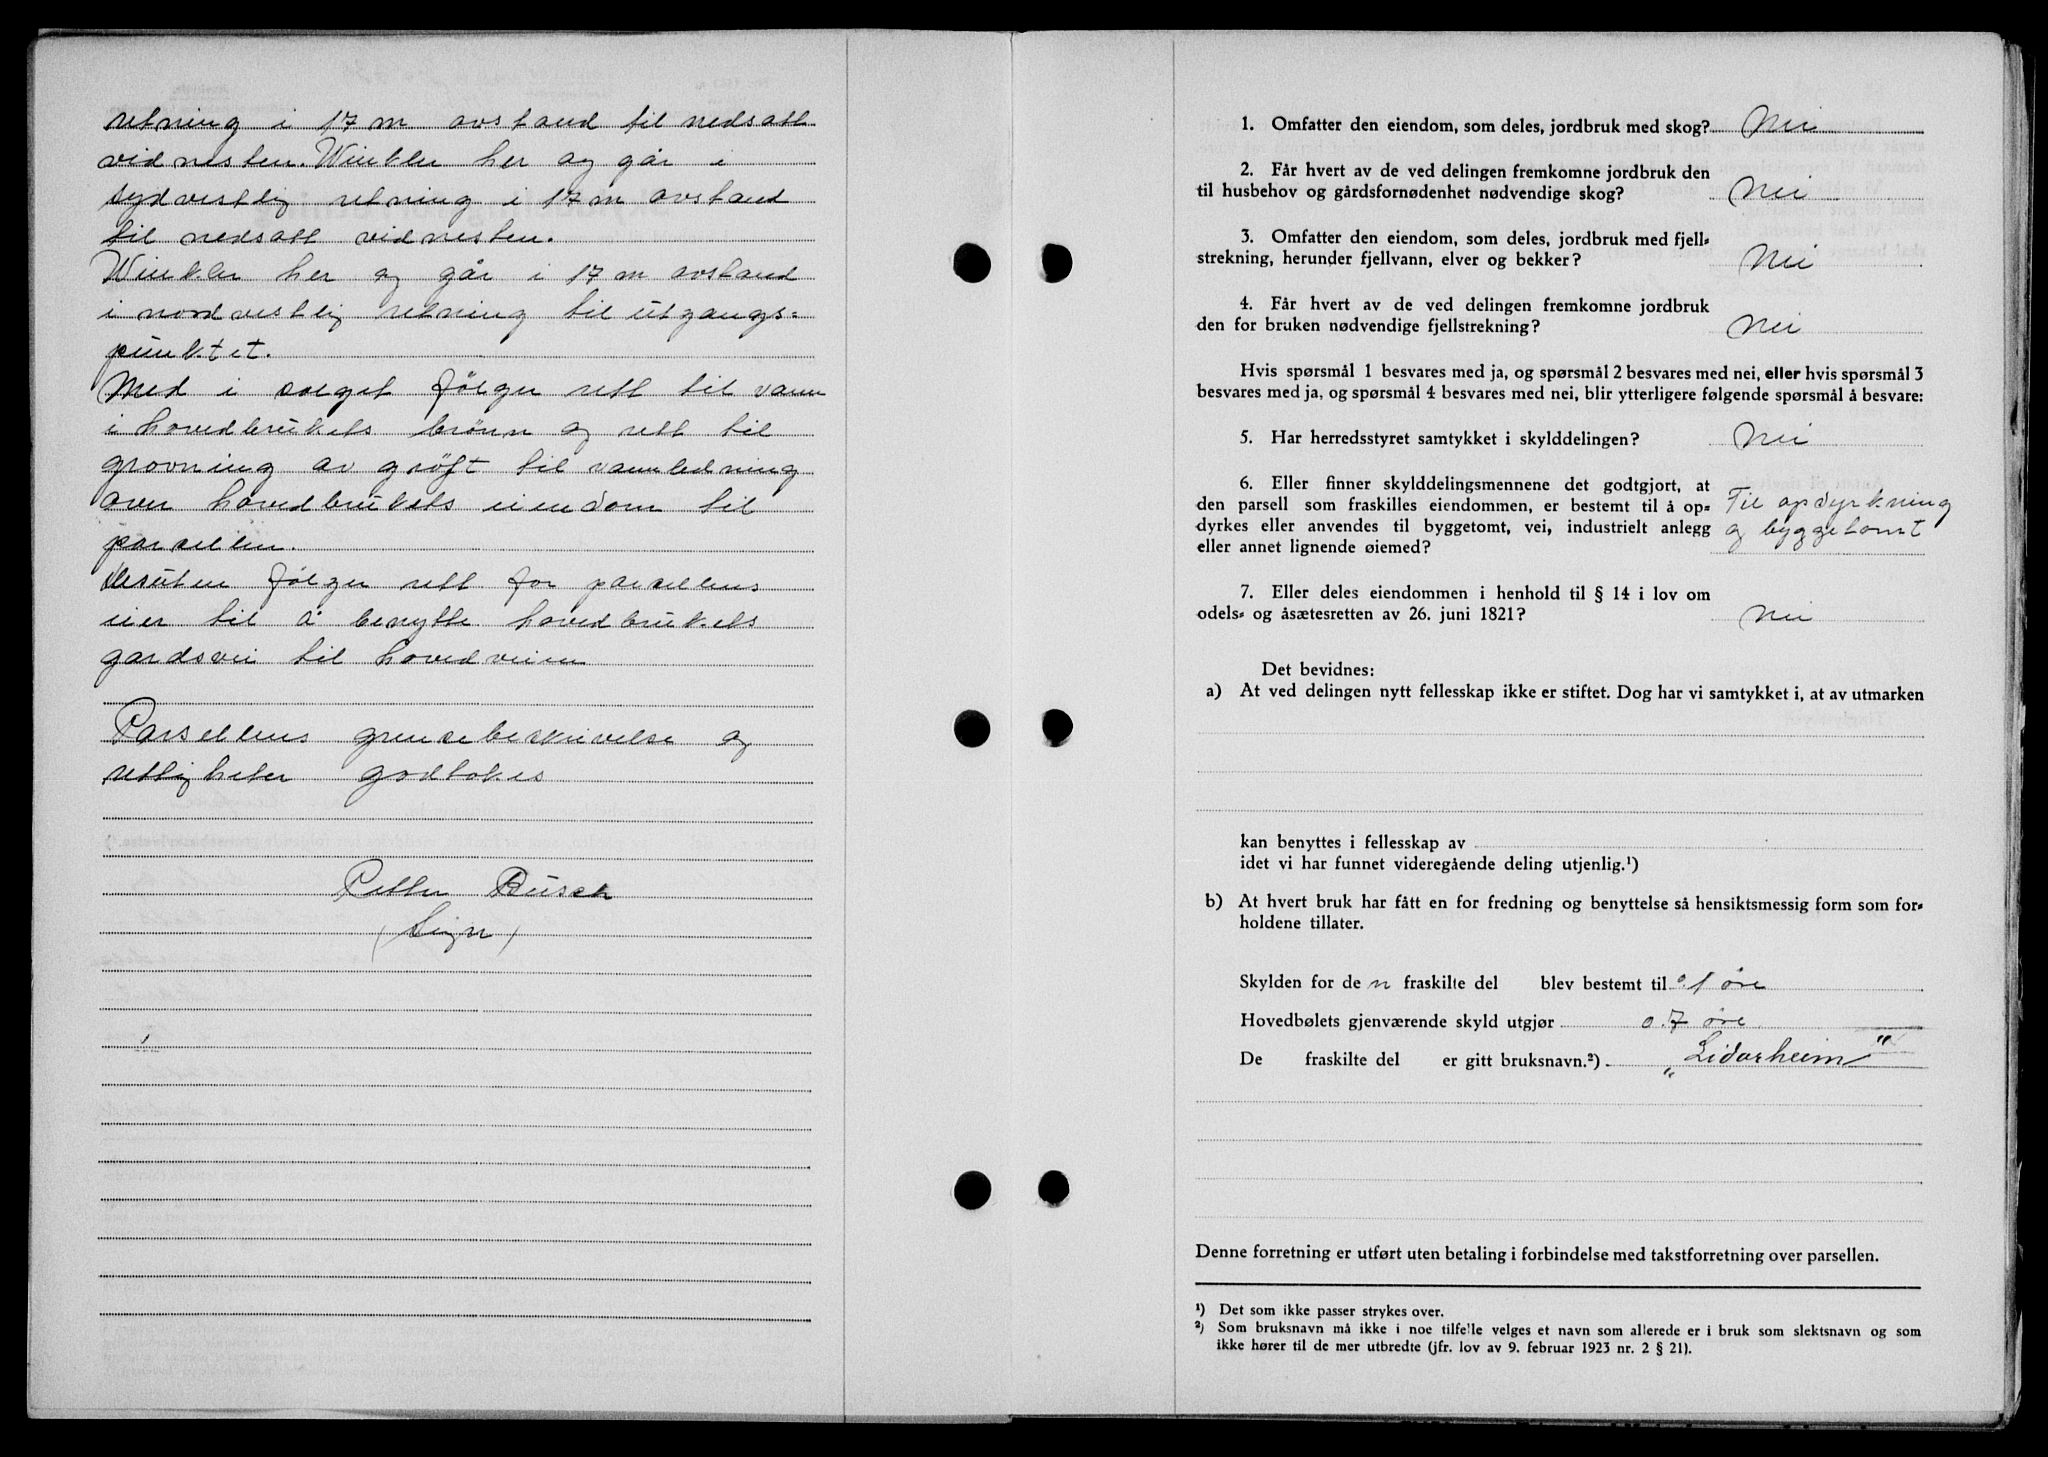 retning i 17 m avstand til nedsatt
vidnesten. Winkler her og går i
sydvestlig retning i 17 m avstand
til nedsatt vidnesten.
Winkler her og går i 17 m avstand
i nordvestlig retning til utgangs=
punktet.
Med i salget følger rett til vann
i hovedbrukets brønn og rett til
gravning av grøft til vannledning
over hovedbrukets eiendom til
parsellen.
Desuten følger rett for parsellens
eier til å benytte hovedbrukets
gardsvei til hovedveien
Parsellens grensebeskrivelse og
rettigheter godtokes
Petter Busch
(Sign)
1. Omfatter den eiendom, som deles, jordbruk med skog? Nei
2. Får hvert av de ved delingen fremkomne jordbruk den
til husbehov og gårdsfornødenhet nødvendige skog? Nei
3. Omfatter den eiendom, som deles, jordbruk med fjell=
strekning, herunder fjellvann, elver og bekker? Nei
4. Får hvert av de ved delingen fremkomne jordbruk
den for bruken nødvendige fjellstrekning? Nei
Hvis spørsmål 1 besvares med ja, og spørsmål 2 besvares med nei, eller hvis spørsmål 3
besvares med ja, og spørsmål 4 besvares med nei, blir ytterligere følgende spørsmål å besvare:
5. Har herredsstyret samtykket i skylddelingen? Nei
6. Eller finner skylddelingsmennene det godtgjort, at
den parsell som fraskilles eiendommen, er bestemt til å op= Til opdyrkning
dyrkes eller anvendes til byggetomt, vei, industrielt anlegg og byggetomt
eller annet lignende øiemed?
7. Eller deles eiendommen i henhold til § 14 i lov om
odels= og åsætesretten av 26. juni 1821? Nei
Det bevidnes:
a) At ved delingen nytt fellesskap ikke er stiftet. Dog har vi samtykket i, at av utmarken
kan benyttes i fellesskap av
idet vi har funnet videregående deling utjenlig.¹)
b) At hvert bruk har fått en for fredning og benyttelse så hensiktsmessig form som for=
holdene tillater.
Skylden for de n fraskilte del blev bestemt til 0.1 øre
Hovedbølets gjenværende skyld utgjør 0.7 øre.
De fraskilte del er gitt bruksnavn.²) „Lidarheim"
Denne forretning er utført uten betaling i forbindelse med takstforretning over parsellen.
¹) Det som ikke passer strykes over.
²) Som bruksnavn må ikke i noe tilfelle velges et navn som allerede er i bruk som slektsnavn og som
ikke hører til de mer utbredte (jfr. lov av 9. februar 1923 nr. 2 § 21).